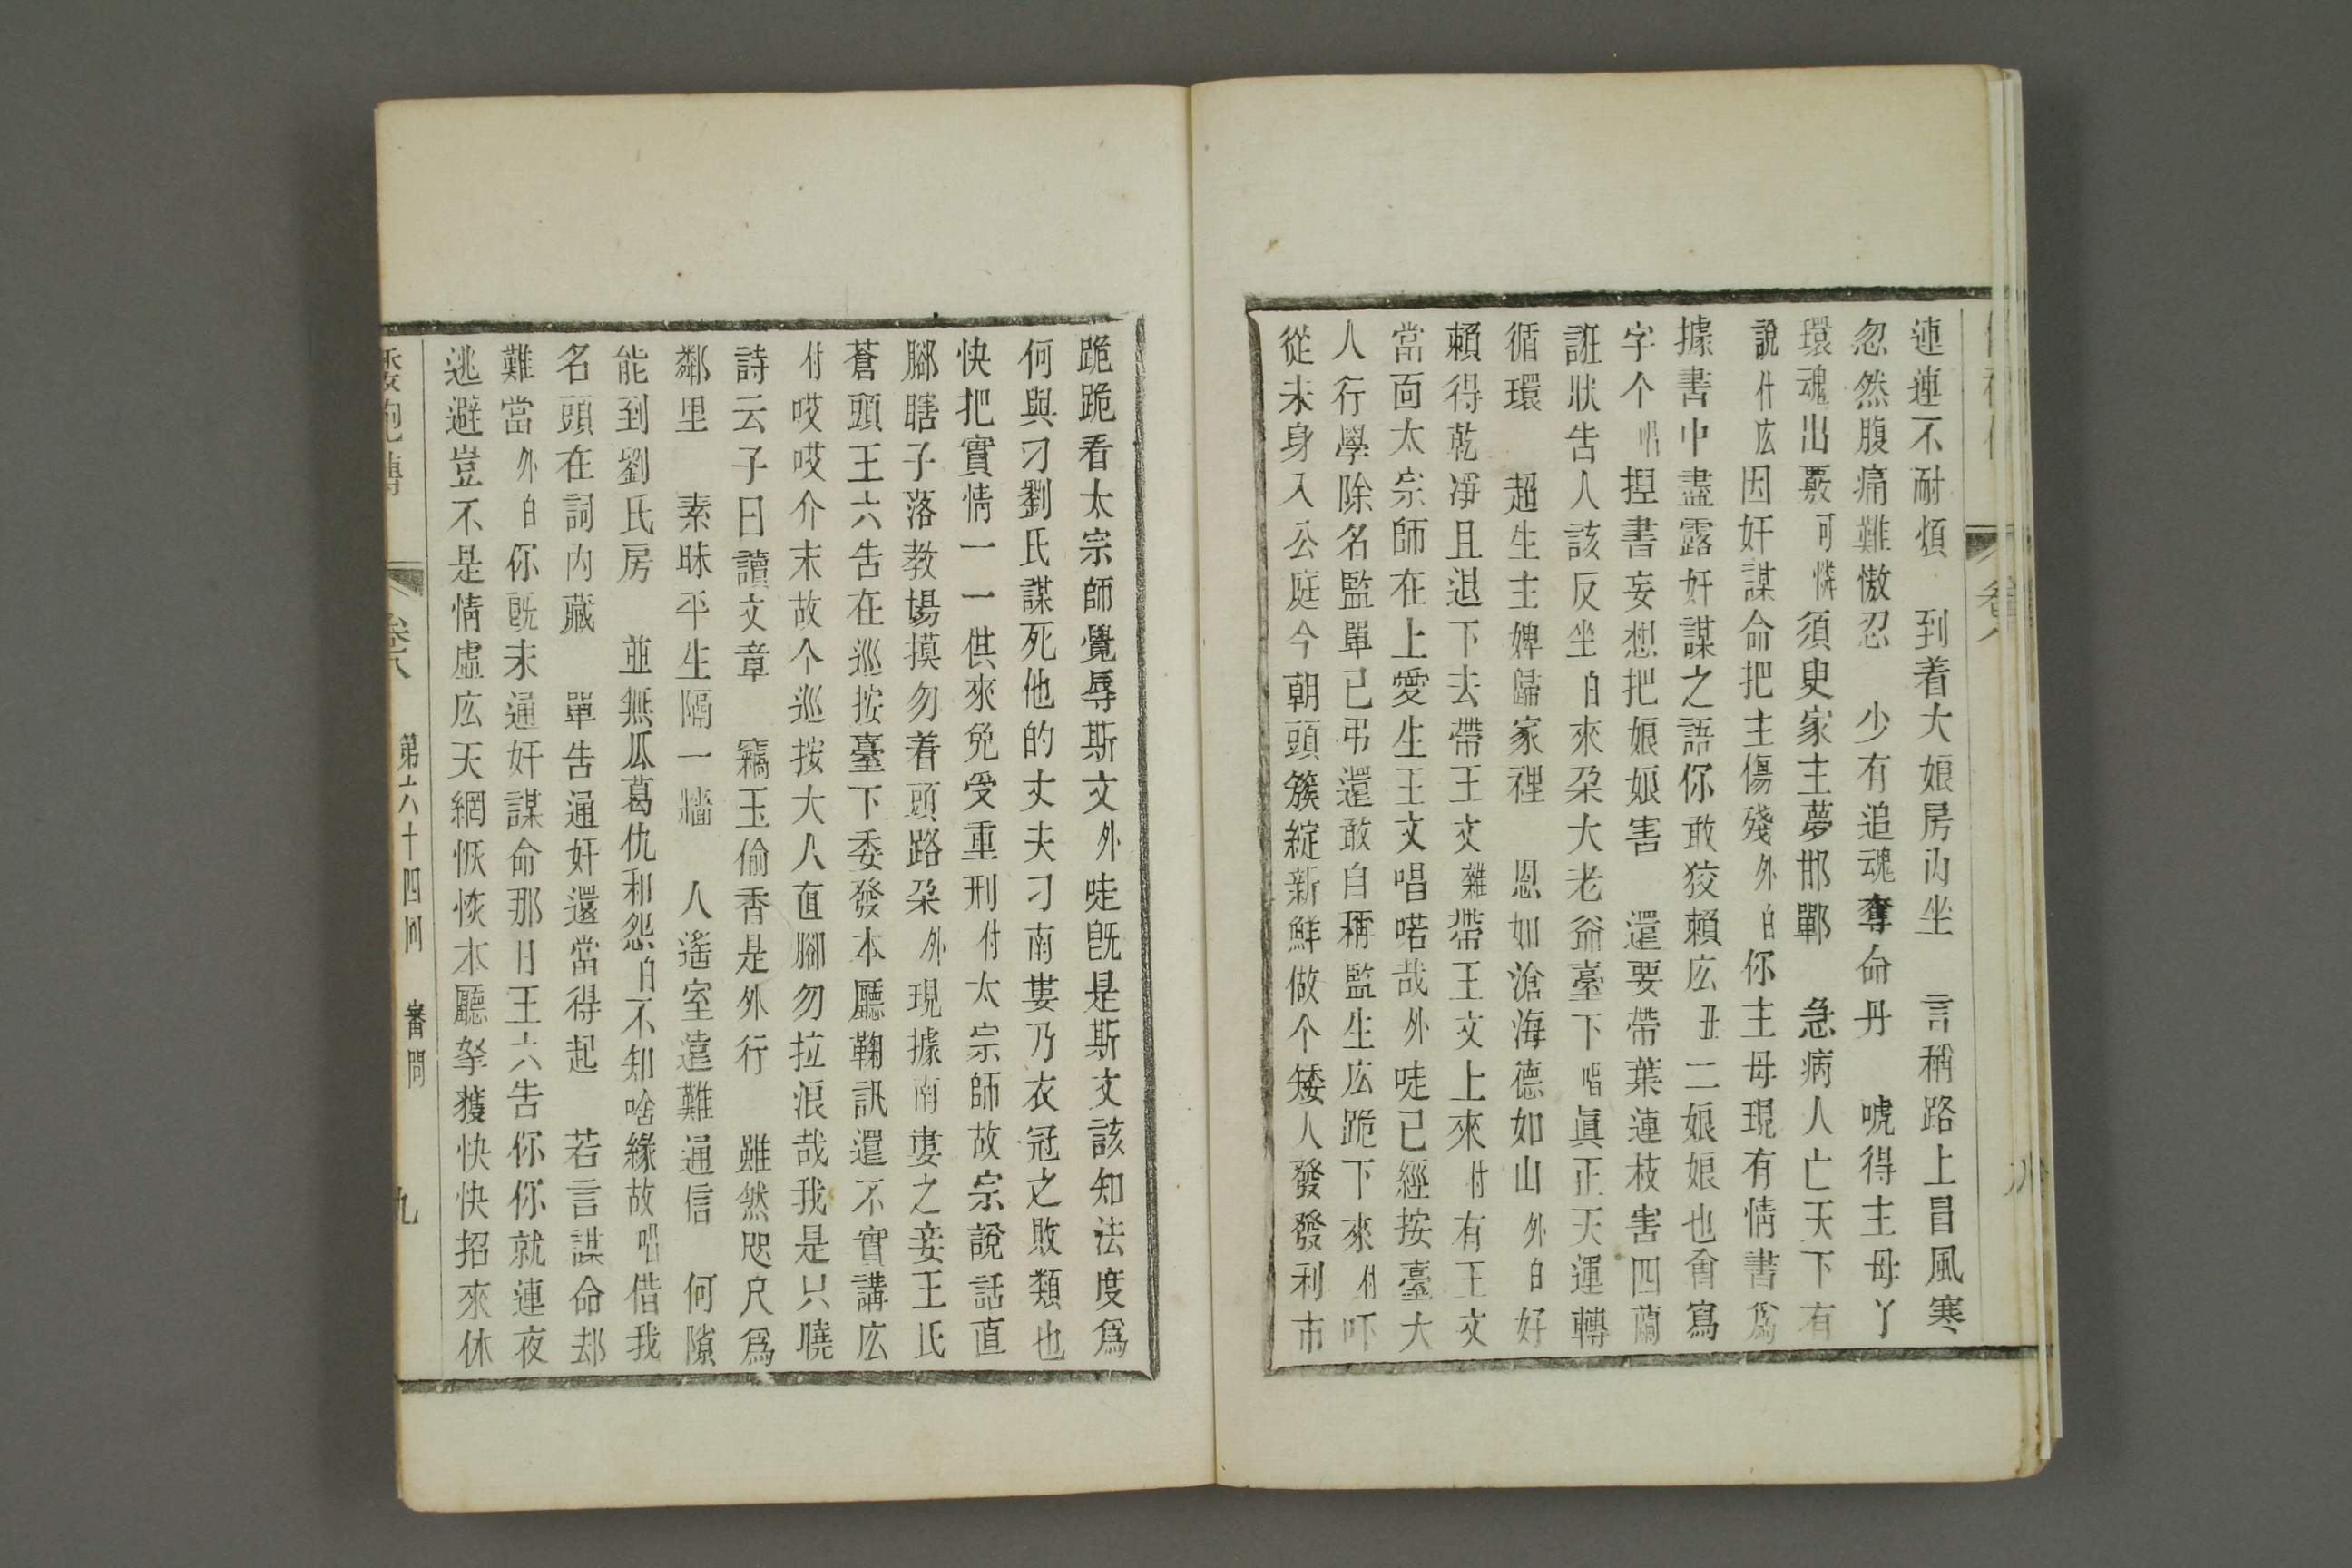 連連不耐煩　到着大娘房內坐　言稱路上冒風寒
忽然腹痛難慠忍　少有追魂奪命丹　唬得主母丫
環魂出竅可憐　須臾家主夢邯鄲　急病人亡天下有
說付庅因奸謀命把主傷殘外白你主母現有情書爲
據書中盡露奸謀之語你敢狡賴庅丑二娘娘也會寫
字个唱揑書妄想把娘娘害　還要帶葉連枝害四蘭
誑狀告人該反坐白來朶大老爺臺下唱眞正天運轉
循環　超生主婢歸家裡　恩如滄海德如山外白好
賴得乾淨且退下去帶王文雜帶王文上來付有王文
當面太宗師在上愛生王文唱喏哉外唗已經按臺大
人行學除名監單已弔還敢自稱監生庅跪下來付吓
從未身入公庭今朝頭簇綻新鮮做个矮人發發利市
跪跪看太宗師覺辱斯文外唗旣是斯文該知法度爲
何與刁劉氏謀死他的丈夫刁南婁乃衣冠之敗類也
快把實情一一供來免受重刑付太宗師故宗說話直
脚瞎子落教場摸勿着頭路朶外現據南婁之妾王氏
蒼頭王六告在巡按臺下委發本廳鞠訊還不實講庅
付哎哎介末故个巡按大人直脚勿拉浪哉我是只曉
詩云子曰讀文章　竊玉偷香是外行　雖然咫尺爲
鄰里　素昧平生隔一牆　人遙室遠難通信　何隙
能到劉氏房　並無瓜葛仇和怨白不知啥緣故唱借我
名頭在詞內藏　單告通奸還當得起　若言謀命却
難當外白你旣未通奸謀命那日王六告你你就連夜
逃避豈不是情虛庅天網恢恢本廳拏獲快快招來休
卷八　第六十四回　審問　九